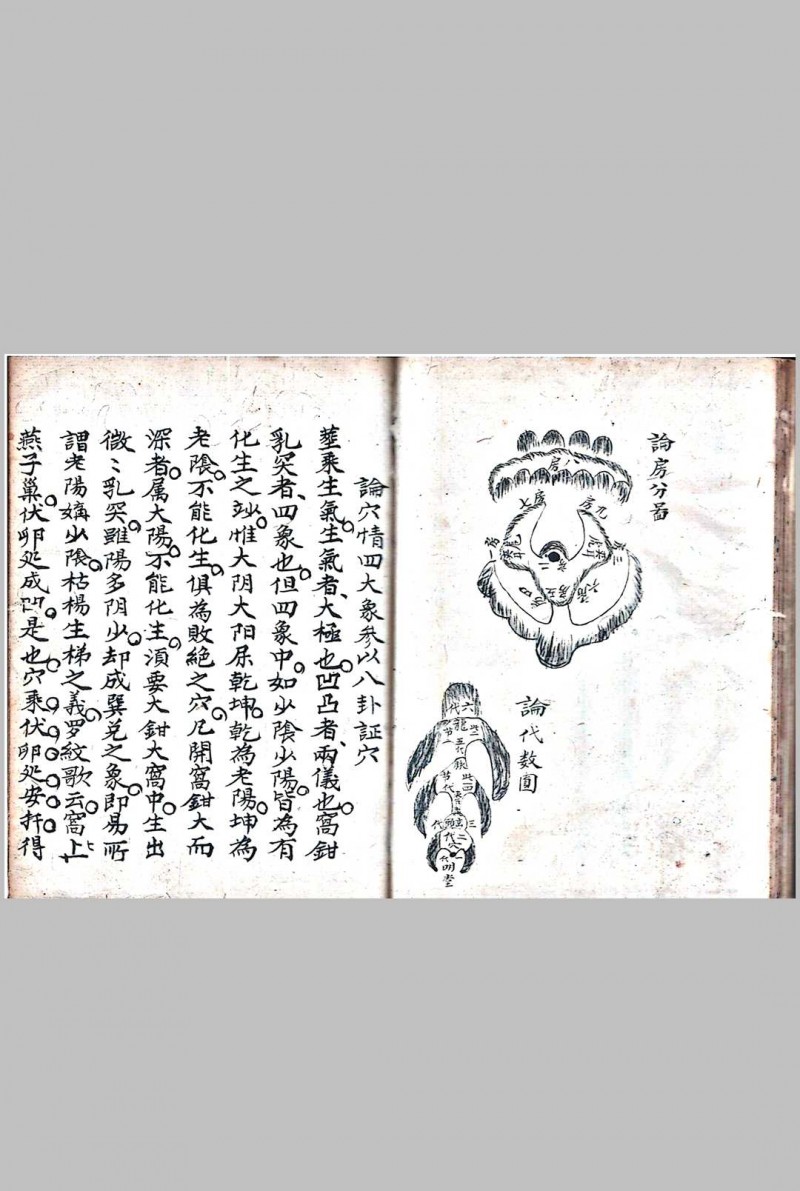 論房分啚
八房
七房
九房
一房
三房
二
四房
五房
六房
論代数圖
六代
龍
五代
四
三代
二代
明堂
論穴情四大象參以八卦証穴
塟乘生氣生氣者大極也凹凸者兩儀也窩鉗
乳突者四象也但四象中如少陰少陽皆為有
化生之妙惟大阴大阳屬乾坤乾為老陽坤為
老陰不能化生俱為敗絶之穴凡開窩鉗大而
深者属大陽不能化生湏要大鉗大窩中生出
微〻乳突雖陽多阴少却成巽兑之象即易所
謂老陽媾少陰枯楊生梯之義罗紋歌云窩上
燕子巢伏卵处成凹是也穴乘伏卵处安扦得